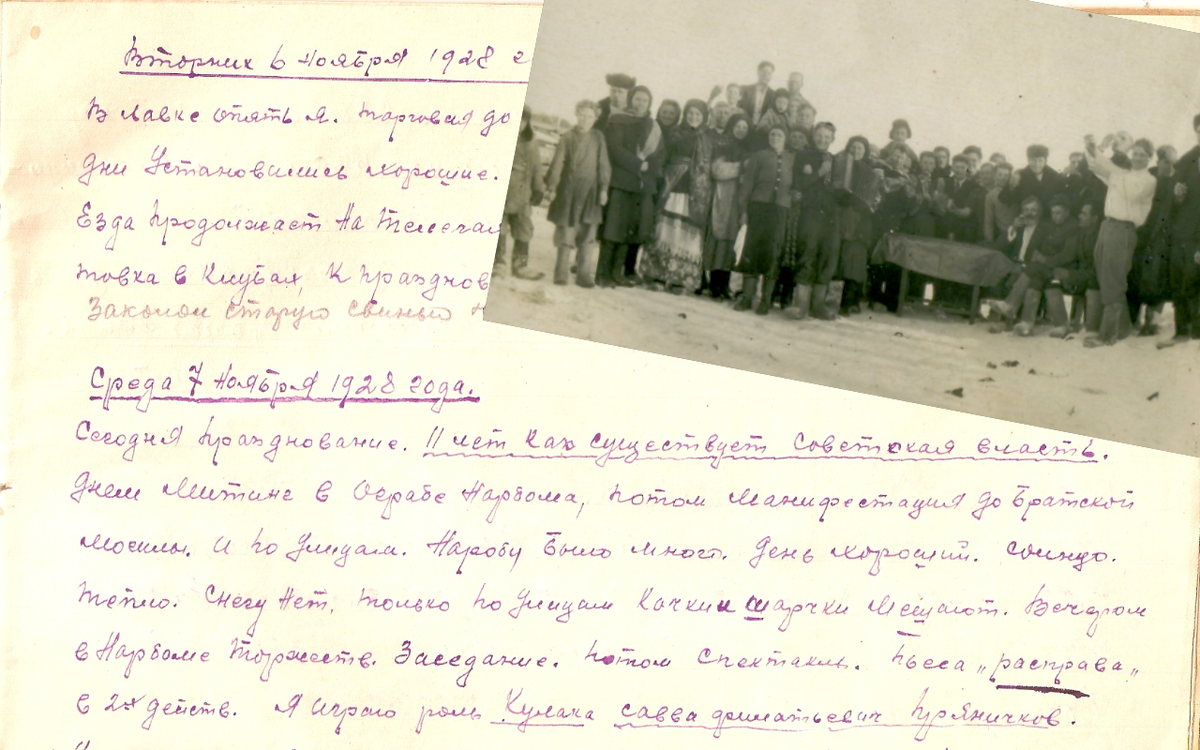 Вторник 6 Ноября 1928 г
В лавке опять я. Торговая до
дни Установились хорошие.
Езда продолжает На Телегах
товка в Клубах, К празднов
Заколол старую свинью
Среда 7 Ноября 1928 года.
Сегодня празднование. 11 лет как существует советская власть.
Днем Митинг в Ограде Нардома, потом Манифестация до Братской
Могилы. и по Улицам. Народу Было много. День хороший. Солнцо.
Тепло. Снегу Нет, только по Улицам Качки и шарчки Мешают. Вечером
в Нардоме Торжеств. Заседание. потом спектакль. пьеса „расправа„
в 2х действ. Я играю роль Кулака савва филатьевич Пряничков.